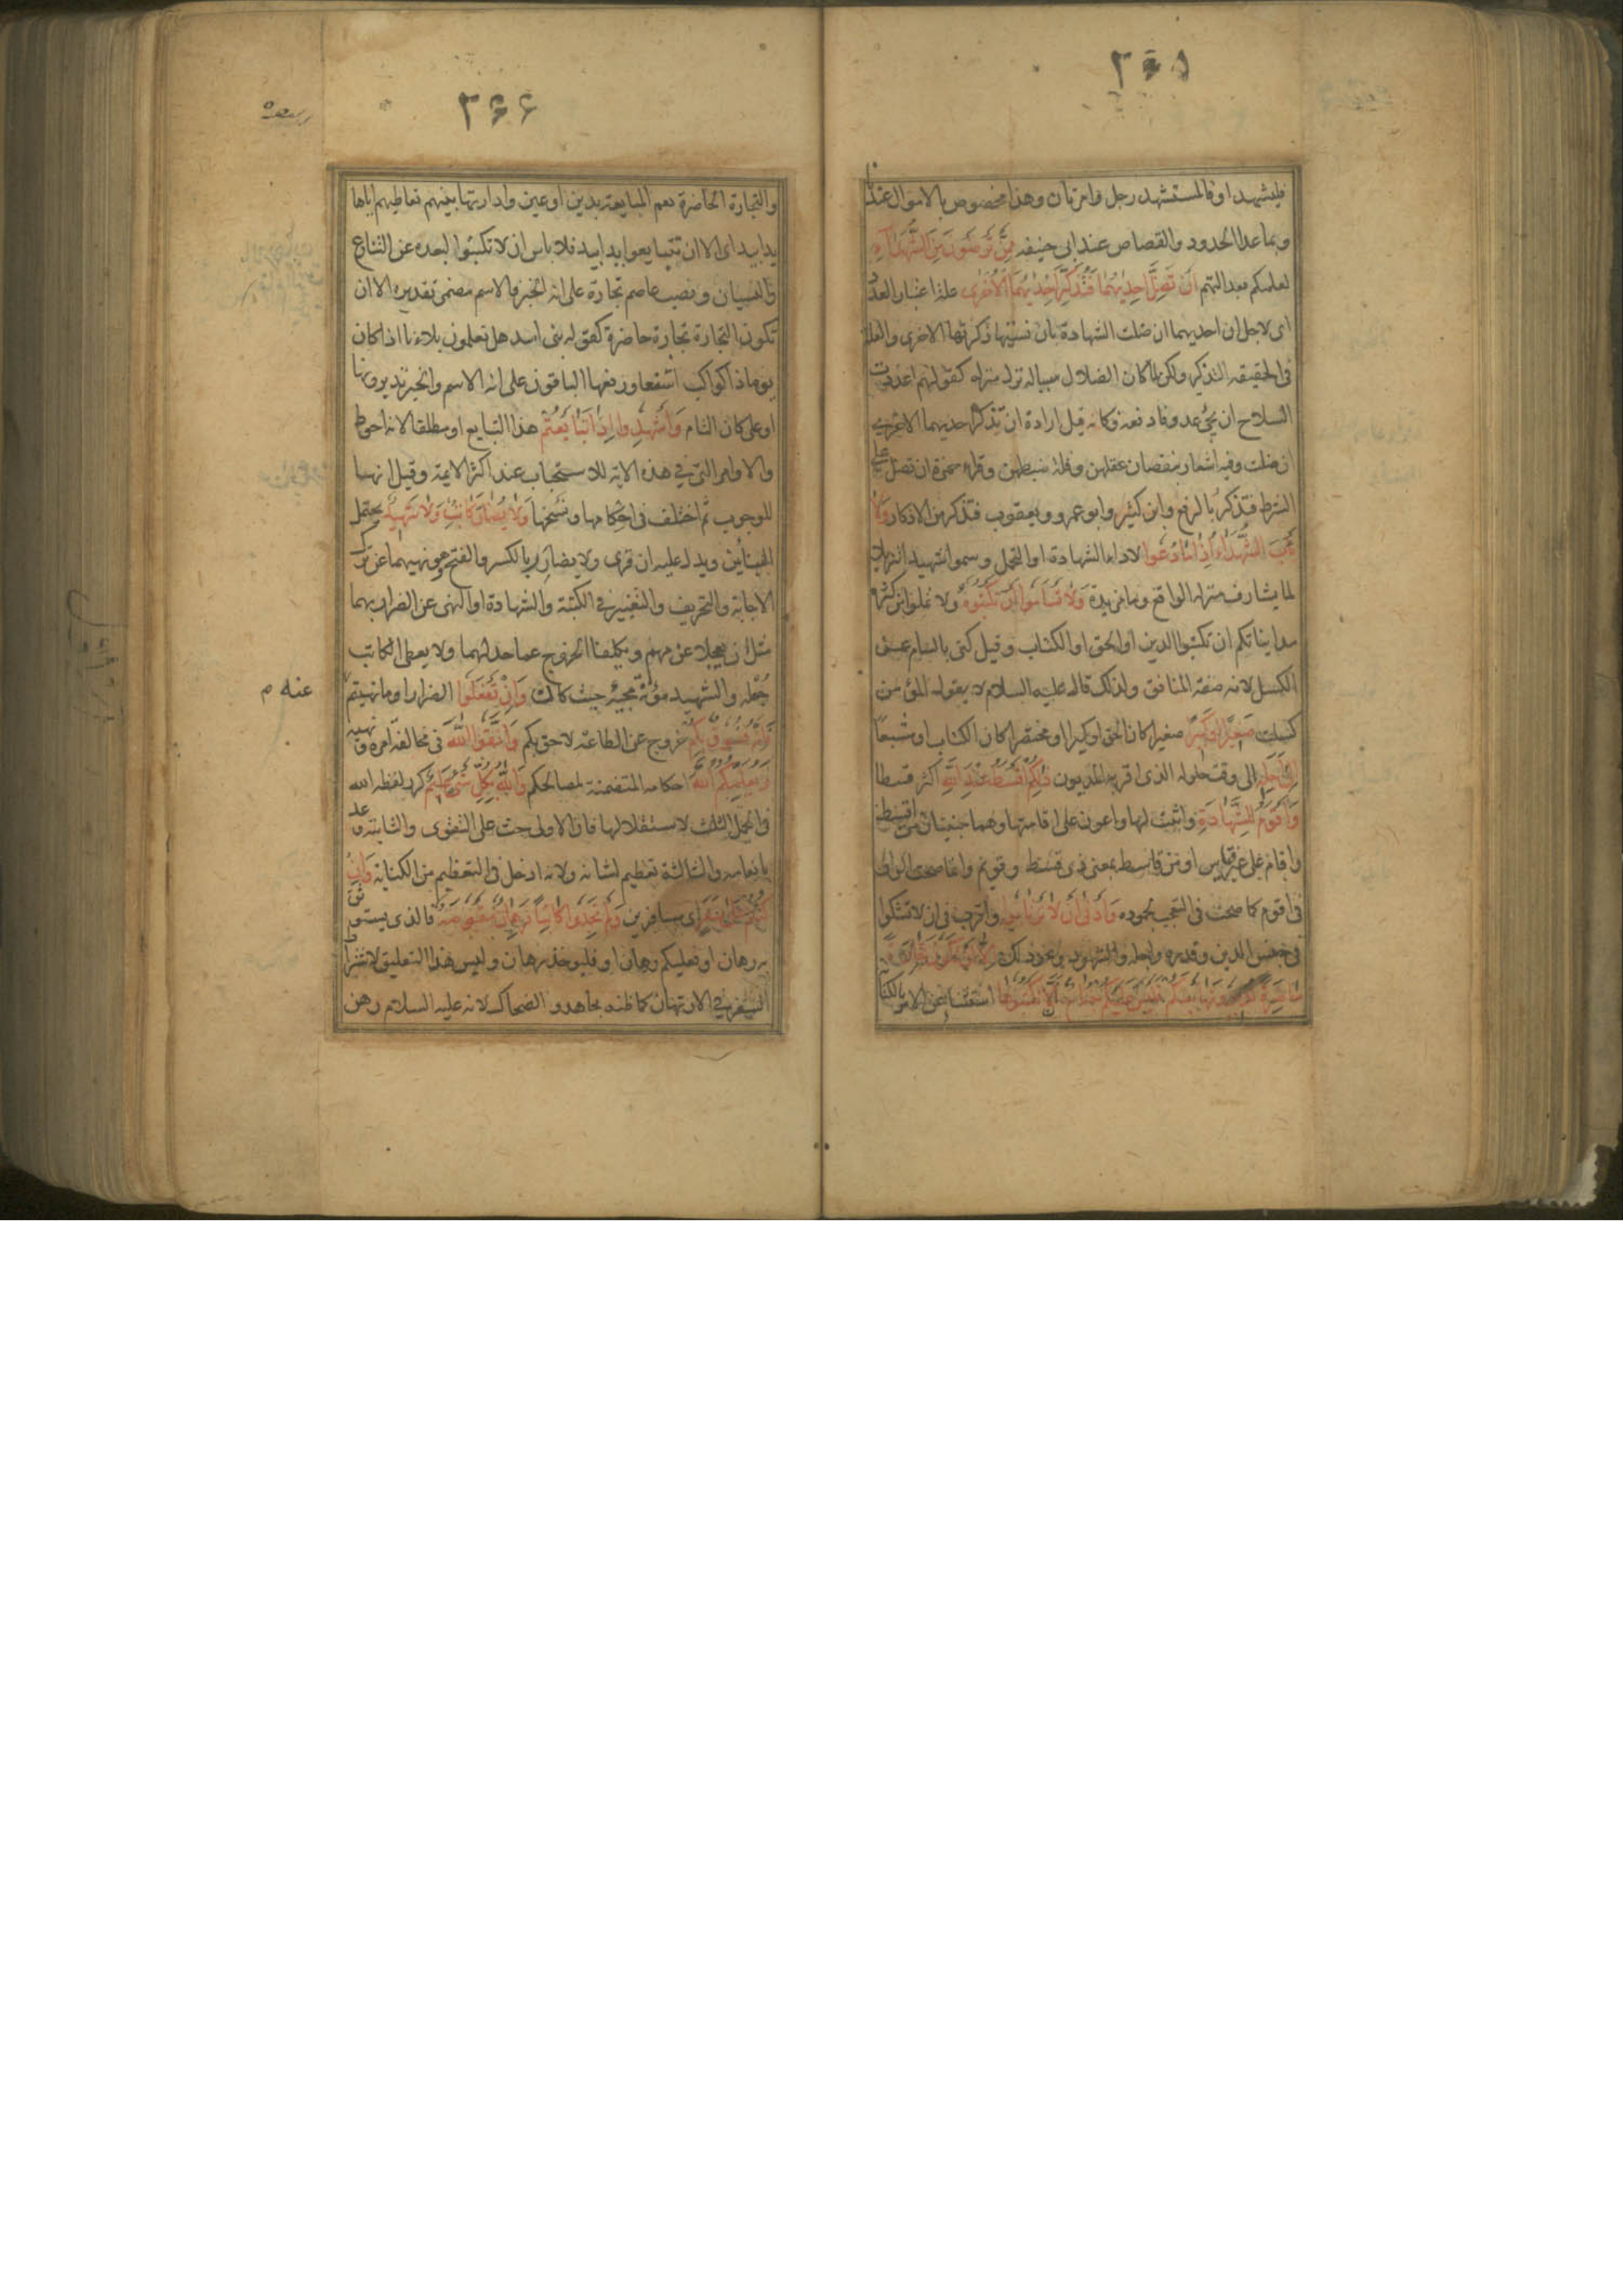 ۲۶۵
فليشهد او فالمستشهد رجل وامرتان وهذا مخصوص بالاموال عندنا
وبماعدا الحدود والقصاص عند ابى حنيفه مِمَّن تَرضَونَ مِنَ الشُّهَدَآءِ
لعلمكم بعدالتهم اَن تَضِلَّ اِحدٰيهُمَا فَتُذَكِّرَ اِحدٰيهُمَا الاُخرٰى علة اعتبار العدد
اى لاجل ان احديهما ان ضلت الشهادة بان نسيتها ذكرتها الاخرى والعلة
فى الحقيقه التذكير ولكن لما كان الضلال سبباله نزل منزله كقولهم اعددت
السلاح ان يجئ عدو فادفعه وكانه قيل ارادة ان تذكر احديهما الاخرى
ان ضلت وفيه اشعار بنقصان عقلهن وقلة ضبطهن وقراء حمزة ان تضل على
الشرط فتذكر بالرفع وابن كثير وابو عمرو ويعقوب فتذكر من الاذكار وَلا
يَأبَ الشُّهَدَاءُ اِذَا مَا دُعُوا لاداء الشهادة او التحمل وسموا شهداء تنزيلا
لما يشارف منزلة الواقع وما مزيدة وَلا تَسأَمُوا اَن تَكتُبُوهُ ولا تملوا من كثرة
مدايناتكم ان تكتبوا الدين او الحق او الكتاب وقيل كنى بالسام عن
الكسل لانه صفة المنافق ولذلك قال عليه السلام لا يقول المؤمن
كسلت صَغِيرًا اَو كَبِيرًا صغيرا كان الحق او كبيرا او مختصرا كان الكتاب او مشبعا
اِلىٰ اَجَلِهِ الى وقت حلوله الذى اقر به المديون ذٰلِكُم اَقسَطُ عِندَ اللّٰهِ اكثر قسطا
وَاَقوَمُ لِلشَّهَادَةِ واثبت لها واعون على اقامتها وهما مبنيتان من اقسط
واقام على غير قياس او من قاسط بمعنى ذى قسط وقويم وانما صحت الواو
فى اقوم كما صحت فى التعجب لجموده وَاَدنىٰ اَن لا تَرتَابُوا واقرب فى ان لا تشكوا
فى جنس الدين وقدره واجله والشهود ونحو ذلك اِلّا اَن تَكُونَ تِجَارَةً
حَاضِرَةً تُدِيرُونَهَا بَينَكُم فَلَيسَ عَلَيكُم جُنَاحٌ اَلّا تَكتُبُوهَا استثناء عن الامر بالكتابة
۲۶۶
والتجارة الحاضرة تعم المبايعة بدين او عين وادارتها بينهم تعاطيهم اياها
يدا بيد اى الا ان تتبايعوا يدا بيد فلا باس ان لا تكتبوا لبعده عن التنازع
والنسيان ونصب عاصم تجارة على انه الخبر والاسم مضمر تقديره الا ان
تكون التجارة تجارة حاضرة كقوله بنى اسد هل تعلمون بلاءنا اذا كان
يوما ذا كواكب اشنعا ورفعها الباقون على انه الاسم والخبر تديرونها
او على كان التام وَاَشهِدُوا اِذَا تَبَايَعتُم هذا التبايع او مطلقا لانه احوط
والاوامر التى فى هذه الاية للاستحباب عند اكثر الايمة وقيل انها
للوجوب ثم اختلف فى احكامها ونسخها وَلا يُضَارَّ كَاتِبٌ وَلا شَهِيدٌ يحتمل
البنائين ويدل عليه ان قرى ولا يضارر بالكسر والفتح وهو نهيهما عن ترك
الاجابة والتحريف والتغيير فى الكتبة والشهادة او النهى عن الضرار بهما
مثل ان يعجلا عن مهم ويكلفا الخروج عما حد لهما ولا يعطى الكاتب
جُعْله والشهيد مؤنة مجيئه حيث كان وَاِن تَفعَلُوا الضرار او ما نهيتم
عنه م
فَاِنَّهُ فُسُوقٌ بِكُم خروج عن الطاعة لاحق بكم وَاتَّقُوا اللّٰهَ فى مخالفة امره ونهيه
وَيُعَلِّمُكُمُ اللّٰهُ احكامه المتضمنة لمصالحكم وَاللّٰهُ بِكُلِّ شَىءٍ عَلِيمٌ كرر لفظة الله
فى الجمل الثلث لاستقلالها فان الاولى حث على التقوى والثانية وعد
بانعامه والثالثة تعظيم لشانه ولانه ادخل فى التعظيم من الكناية وَاِن
كُنتُم عَلىٰ سَفَرٍ اى مسافرين وَلَم تَجِدُوا كَاتِبًا فَرِهَانٌ مَقبُوضَةٌ فالذى يستوثق
به رهان او فعليكم رهان او فليوخذ رهان وليس هذا التعليق لاشتراط
السفر فى الارتهان كما ظنه مجاهد والضحاك لانه عليه السلام رهن